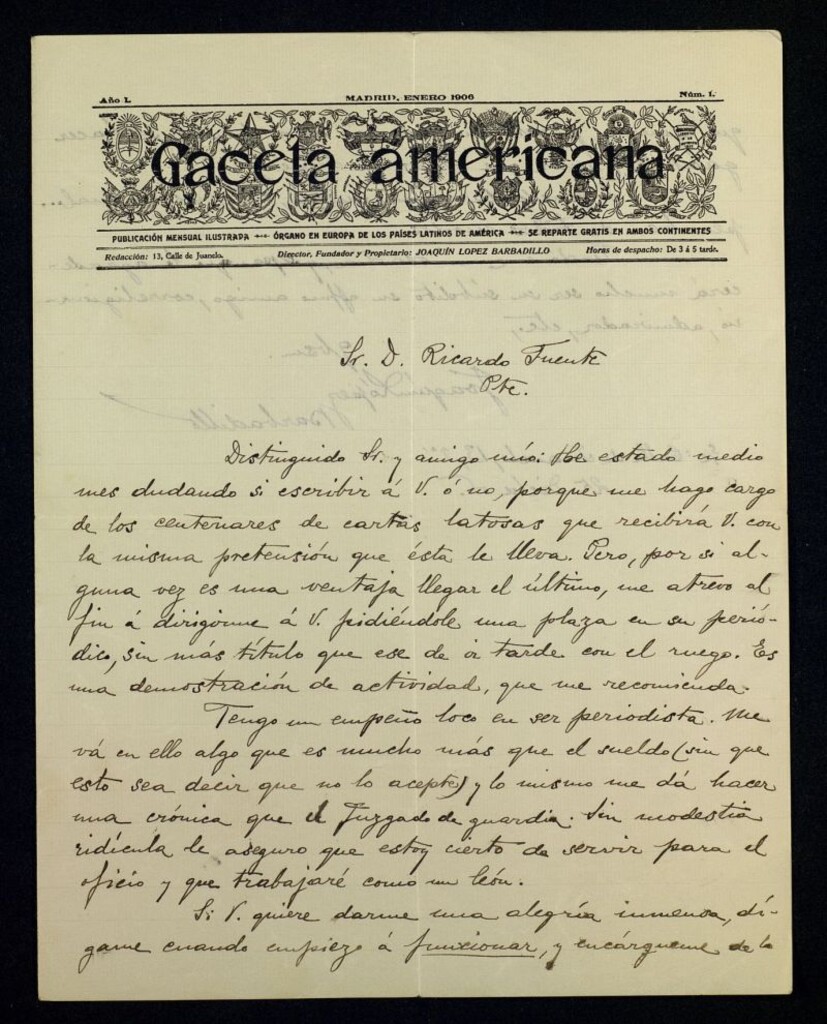 Año I.
MADRID, ENERO 1906
Núm. 1.
Gaceta americana
PUBLICACIÓN MENSUAL ILUSTRADA ÓRGANO EN EUROPA DE LOS PAÍSES LATINOS DE AMÉRICA SE REPARTE GRATIS EN AMBOS CONTINENTES
Redacción: 13, Calle de Juanelo. Director, Fundador y Propietario: JOAQUÍN LOPEZ BARBADILLO Horas de despacho: De 3 á 5 tarde.
Sr. D. Ricardo Fuente
Pte.
Distinguido Sr. y amigo mío: He estado medio
mes dudando si escribir á V. ó no, porque me hago cargo
de los centenares de cartas latosas que recibirá V. con
la misma pretensión que ésta le lleva. Pero, por si al-
guna vez es una ventaja llegar el último, me atrevo al
fin á dirigirme á V. pidiéndole una plaza en su perió-
dico, sin más título que ese de ir tarde con el ruego. Es
una demostración de actividad, que me recomienda.
Tengo un empeño loco en ser periodista. Me
vá en ello algo que es mucho más que el sueldo (sin que
esto sea decir que no lo acepte) y lo mismo me dá hacer
una crónica que el Juzgado de guardia. Sin modestia
ridícula le aseguro que estoy cierto de servir para el
oficio y que trabajaré como un león.
Si V. quiere darme una alegría inmensa, dí-
game cuando empiezo á funcionar, y encárgueme de lo